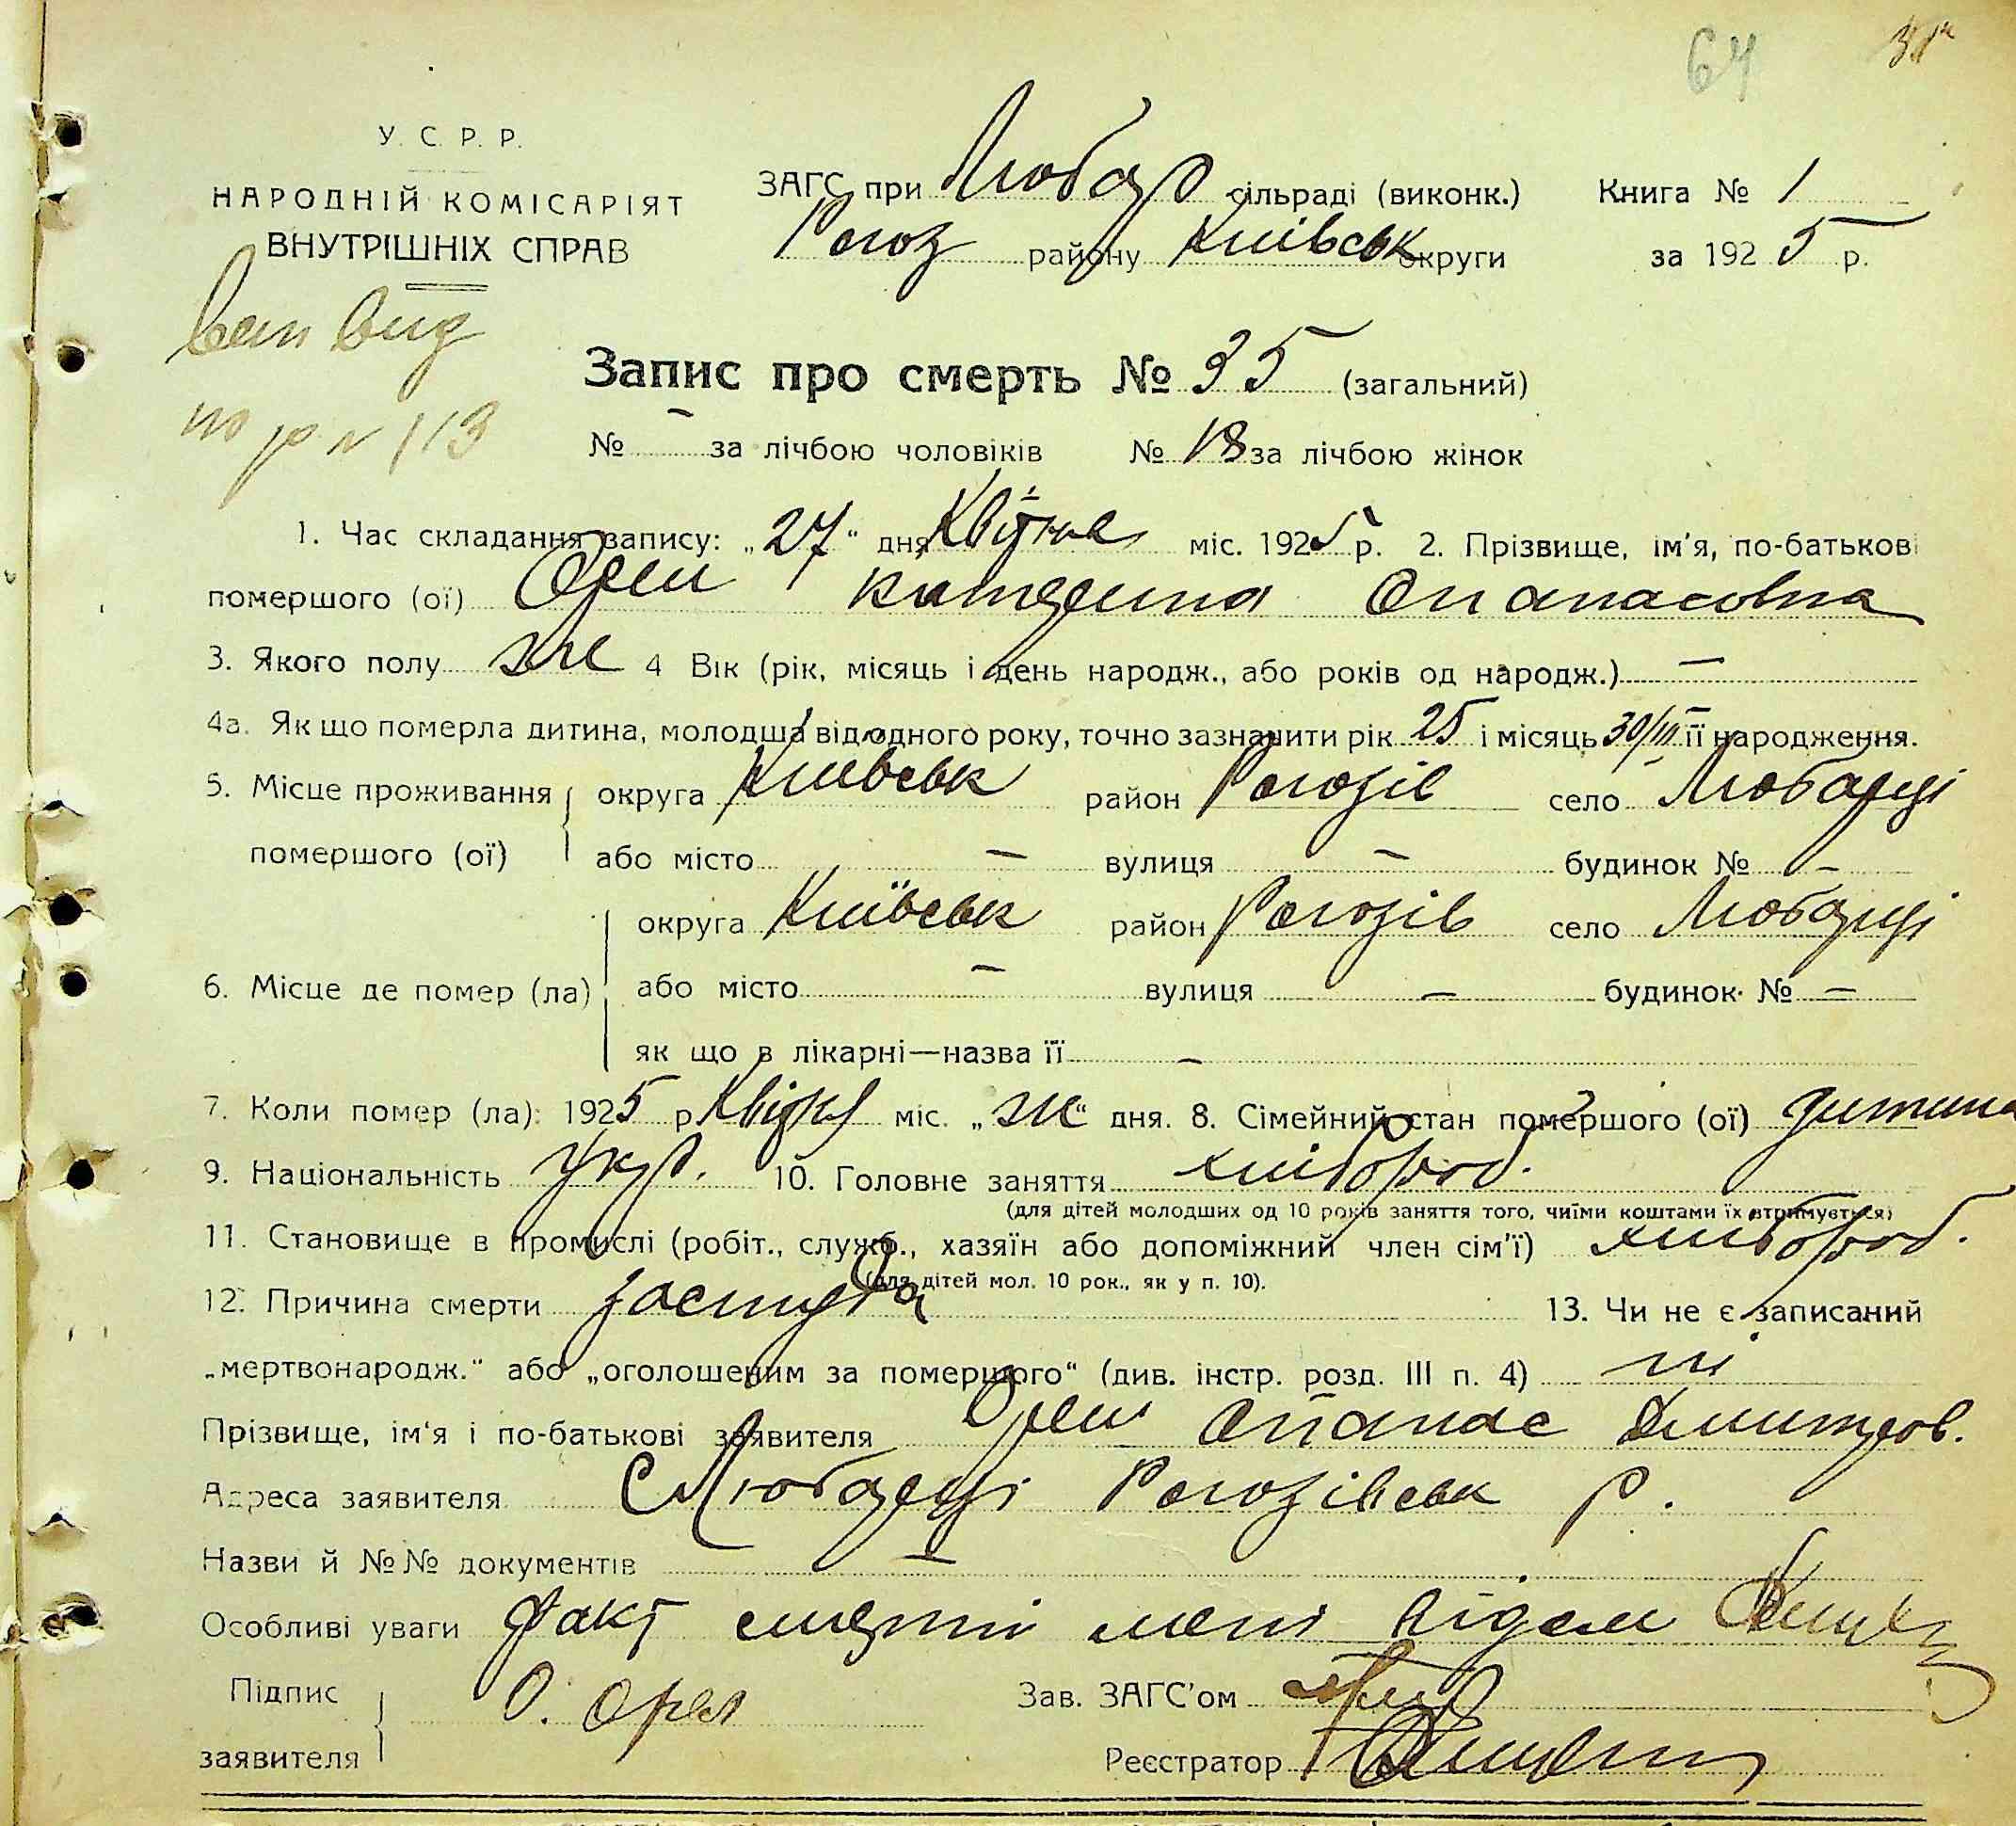 64
У. С. Р. Р.
НАРОДНІЙ КОМІСАРІЯТ
ВНУТРІШНІХ СПРАВ
ЗАГС при Любар сільраді (виконк.) Книга № 1
Рогоз району Київськ округи за 1925 р.
Запис про смерть № 35 (загальний)
№ – за лічбою чоловіків № 18 за лічбою жінок
1. Час складання запису: „27“ дня Квітня міс. 1925 р. 2. Прізвище, ім'я, по-батькові
помершого (ої) Орел Катерина Опанасовна
3. Якого полу жі 4 Вік (рік, місяць і день народж., або років од народж.) —
4а. Як що померла дитина, молодша від одного року, точно зазначити рік 25 і місяць 30/III її народження.
5. Місце проживання округа Київськ район Рогозів село Любарці
помершого (ої) або місто — вулиця — будинок № –
округа Київськ район Рогозів село Любарці
6. Місце де помер (ла) або місто — вулиця — будинок № —
як що в лікарні—назва її –
7. Коли помер (ла): 1925 р. Квітня міс. „ “ дня. 8. Сімейний стан помершого (ої) дитина
9. Національність укр. 10. Головне заняття хлібороб.
(для дітей молодших од 10 років заняття того, чиїми коштами їх втримується)
11. Становище в промислі (робіт., служб., хазяїн або допоміжний член сім'ї) хлібороб.
(для дітей мол. 10 рок., як у п. 10).
12. Причина смерти застуда 13. Чи не є записаний
„мертвонародж.“ або „оголошеним за помершого“ (див. інстр. розд. III п. 4) ні
Прізвище, ім'я і по-батькові заявителя Орел Опанас Дмитров.
Адреса заявителя С Любарці Рогозівськ р.
Назви й №№ документів —
Особливі уваги факт смерті мені відом
Підпис
заявителя О. Орел
Зав. ЗАГС'ом
Реєстратор